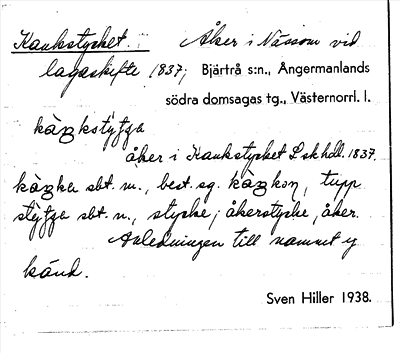 Kaukstycket. Åker i Nässom vid
lagaskifte 1837; Bjärtrå s:n., Ångermanlands
södra domsagas tg., Västernorrl. l.
åker i Kaukstycket L sk hdl. 1837.
sbt. m., best. sg. tupp
sbt. n., stycke; åkerstycke, åker.
Anledningen till namnet ej
känd.
Sven Hiller 1938.